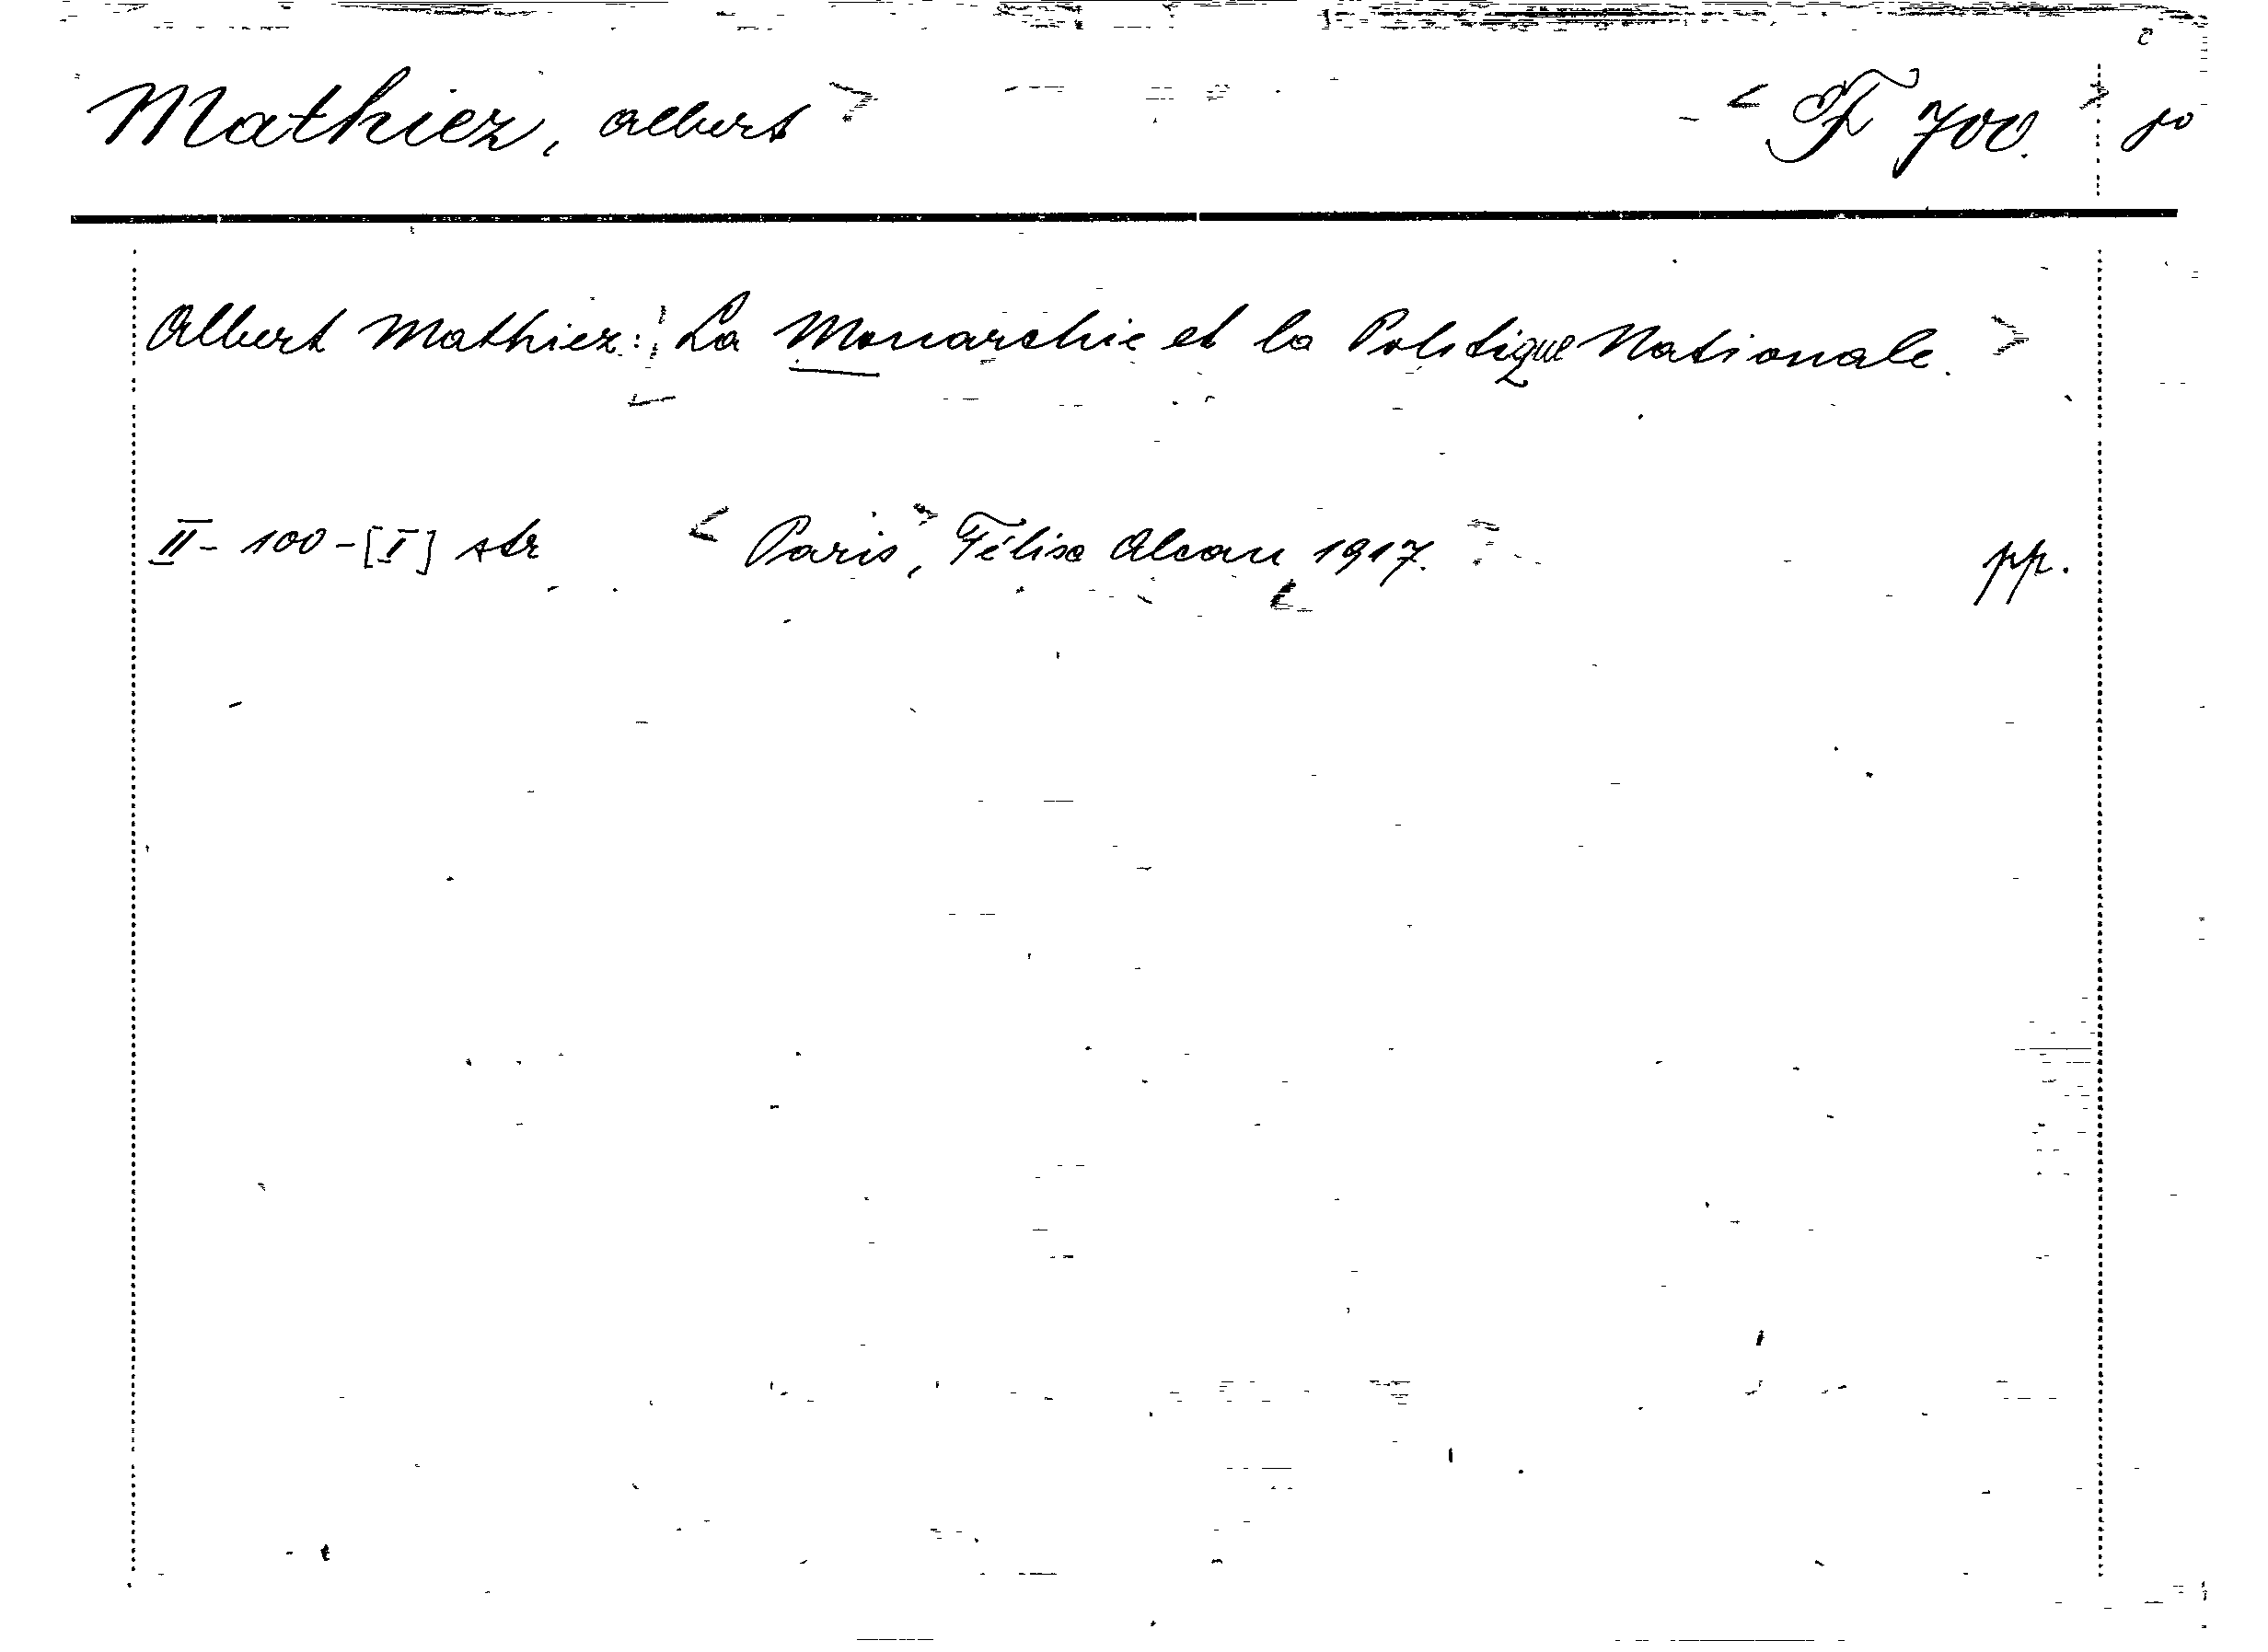 Mathiez, Albert F 700.
Albert Mathiez: La Monarchie et la Politique Nationale.
II- 100-[I] str Paris, Félix Alcan 1917. pp.